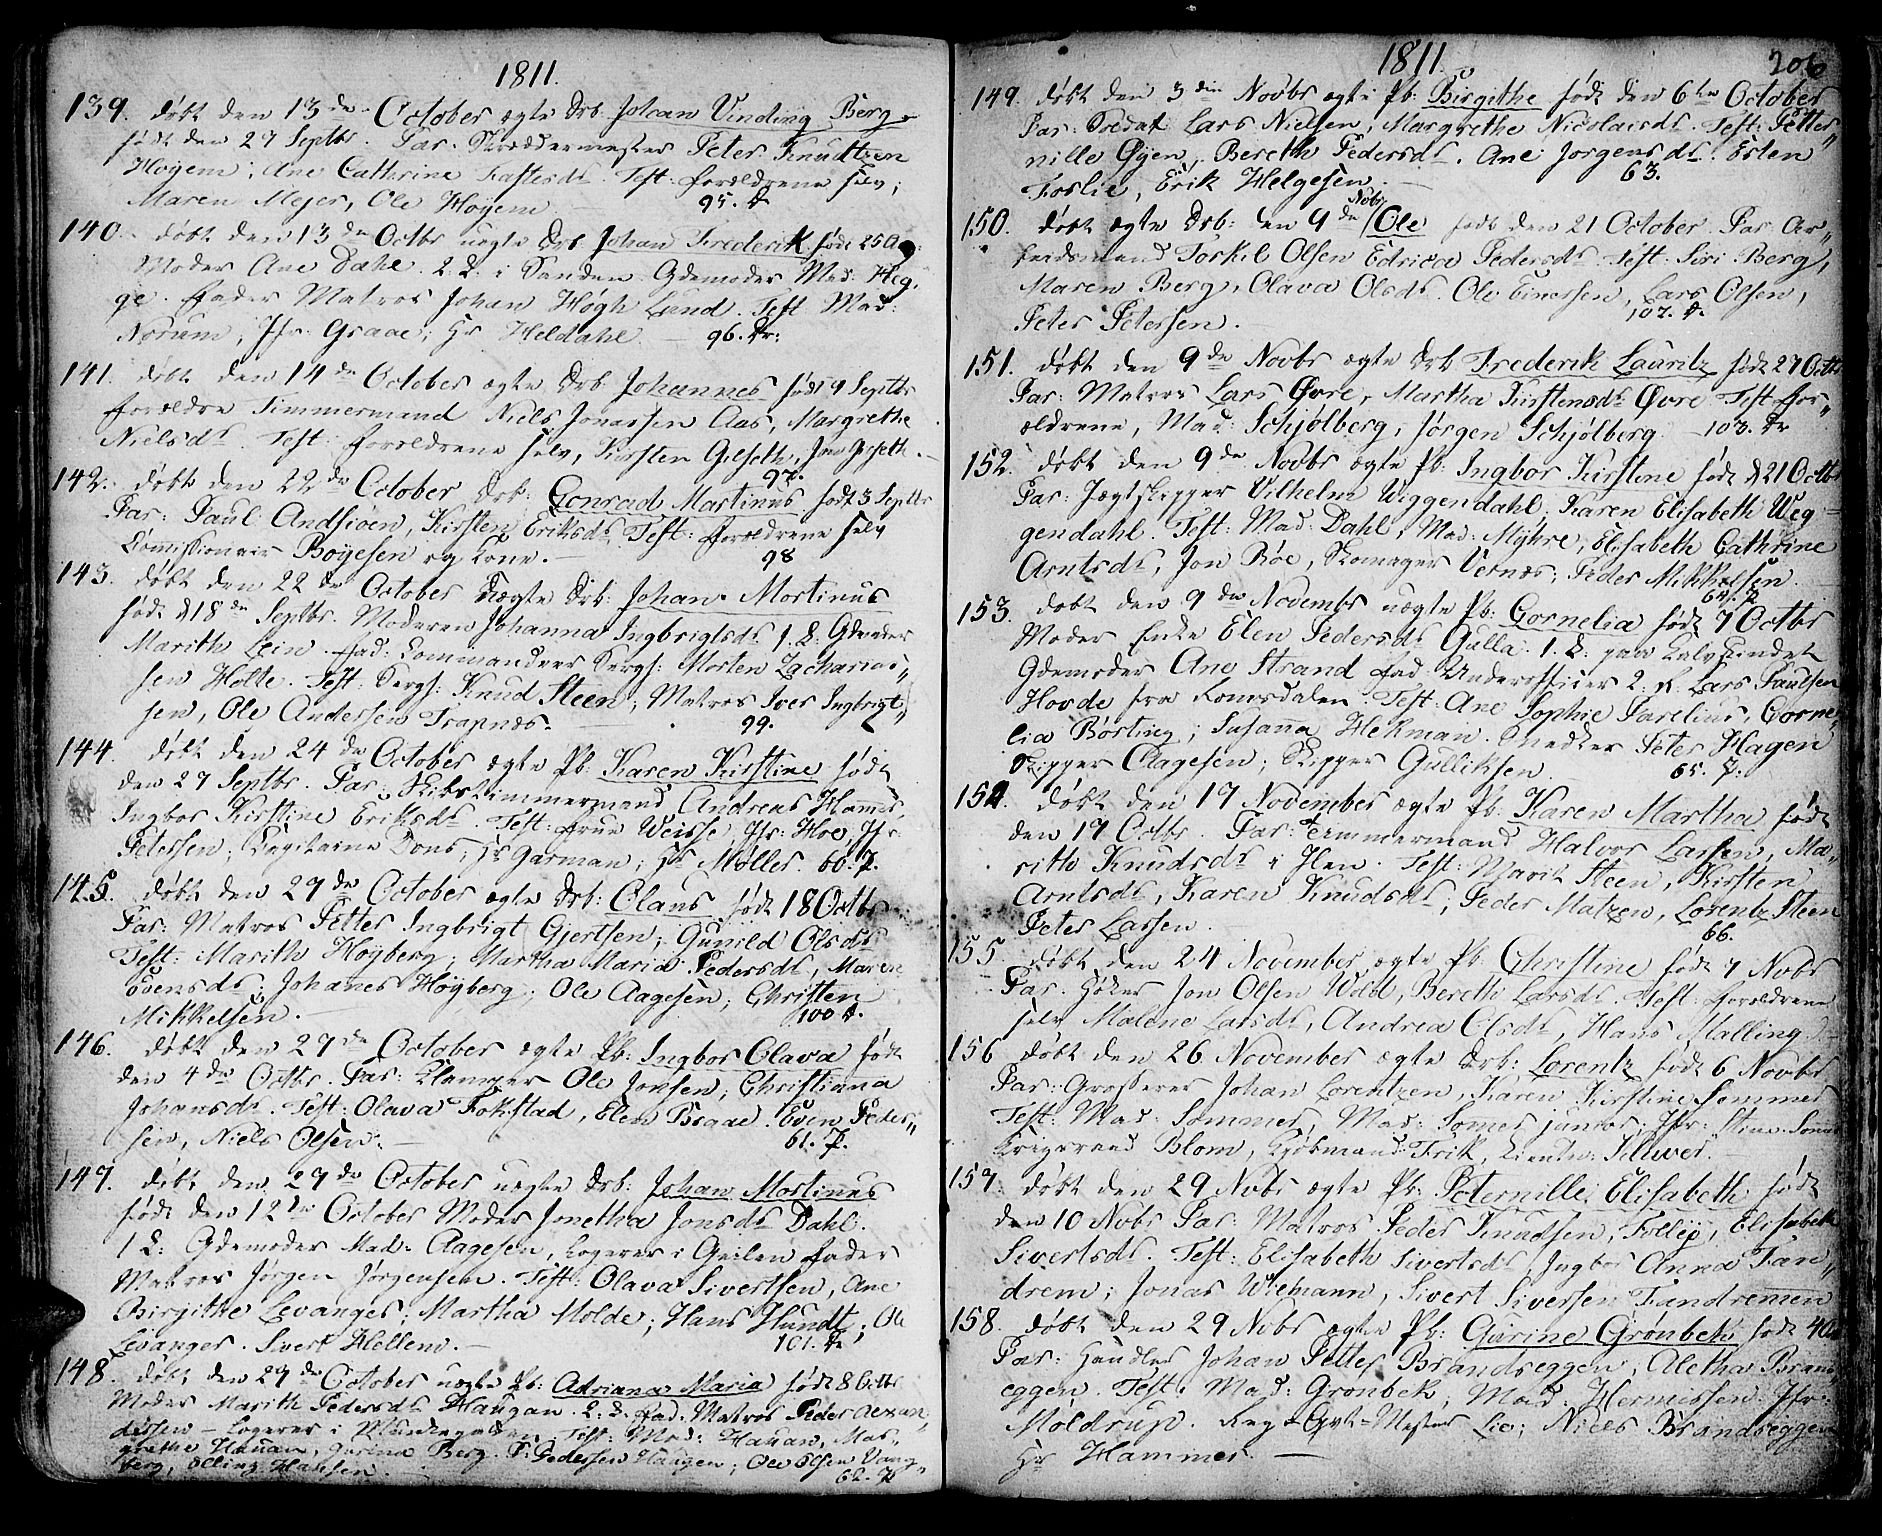 1811.
139. døbt den 13de October ægte Drb. Johan Vinding Berg
født den 27 Septbr. Par: Skræddermester Peter Knudtzen
Høyem; Ane Cathrine Fastesds. Test: Forældrene selv;
Maren Mejer, Ole Høyem 95. D
140. døbt den 13de Octbr uægte Drb. Johan Frederik født 25 Aug:
Moder Ane Dahl. 2.L. i Sanden Gdemoder Mad: Heg,
ge. Fader Matros Johan Høgh Lund. Test Mad:
Norum; Jfr: Graae; Hr Heldahl. 96. Dr:
141. døbt den 14de October ægte Drb: Johannes født 9 Septbr
Forældre Timmermand Niels Jonassen Aas, Margrethe
Nielsds. Test: Forældrene selv, Kirsten Gilseth, Jon Gilseth.
97.
142. døbt den 22de October Drb: Conrad Martinus født 3 Septbr
Par: Paul Andsiøen, Kirsten Eriksds. Test: Forældrene selv
Commissionair Boyesen og Kone. 98
143. døbt den 22de October uægte Drb: Johan Mortinus
født d 18de Septbr. Moderen Johanna Ingbrigtsds. 1.L. Gdmoder
Marith Lein. Fad: Commandeer Serg: Morten Zacharias„
sen Holte. Test: Serg: Knud Steen; Matros Iver Ingbrigt„
sen, Ole Andersen Trapnæs. 99.
144. døbt den 24de October ægte Pb: Karen Kirstine født
den 27 Septbr. Par: Skibstimmermand Andreas Hammer,
Ingbor Kirstine Eriksds. Test: Frue Weisse, Jfr: Hoe, Jfr.
Petersen; Capitaine Dons; Hr Garman; Hr Møller. 60. P.
145. døbt den 27de October ægte Drb: Claus født 18 Octbr
Par: Matros Petter Ingbrigt Gjertsen; Gunild Olsds
Test: Marith Høyberg; Martha Maria Pedersds, Maren
Evensds; Johanes Høyberg; Ole Aagesen; Christen
Mikkelsen. 100 D.
146. døbt den 27de October ægte Pb: Ingbor Olava født
den 4de Octbr. Par: Klamper Ole Jonsen; Christiana
Johansds. Test: Olava Fokstad, Elen Braae. Even Peder„
sen, Niels Olsen. 61. P.
147. døbt den 29de October uægte Drb: Johan Mortinus
født den 12te October Moder Jonetha Jonsds Dahl.
1 L: Gdemoder Mad: Aagesen, Logerer i Geilen Fader
Matros Jørgen Jørgensen. Test: Olava Sivertsen, Ane
Birgithe Levanger; Martha Molde; Hans Hundt; Ole
Levanger. Sivert Hellem. 101. Dr
148. døbt den 29de October uægte Pb: Adriana Maria født 8 Octbr
Moder Marith Pedersds Haugan. 2.L. Fad: Matros Peder Alexan„
dersen – Logerer i Test: Mad: Hauan, Mar„
grethe Hauan, Gurina Berg. P: Pedersen Haugen; Ole Olsen Vang„
berg, Olling Hansen. 62. P
1811. 206
149. døbt den 3die Novbr ægte Pb: Birgithe født den 6te October
Par: Soldat Lars Nielsen, Margrethe Nicolaisds. Test: Petter„
nille Øyen, Bereth Pedersds. Ane Jorgensds. Esten
Foslie, Erik Helgesen. 63.
150. døbt ægte Drb: den 9de Novbr Ole født den 21 October. Par: Ar„
beidsmand Torkil Olsen Edrica Pedersds Test: Siri Berg,
Maren Berg, Olava Olsds. Ole Einersen, Lars Olsen,
Peter Petersen. 102. D.
151. døbt den 9de Novbr ægte Drb Frederik Lauritz født 27 Octbr
Par: Matros Lars Øvre, Martha Kirstensds Øvre Test For„
ældrene, Mad: Schjølberg, Jørgen Schjølberg 103. Dr
152. døbt den 9de Novbr ægte Pb: Ingbor Kirstine født d 21 Octbr
Par: Jægtskipper Vilhelm Wiggendahl; Karen Elisabeth Weg
gendahl. Test: Mad: Dahl, Mad: Myhre, Elisabeth Cathrine
Arntsds, Jon Röe, Skomager Vernæs; Peder Mikkelsen.
64. P
153. døbt den 9de Novembr uægte Pb: Cornelia født 7 Octbr
Moder Enke Elen Pedersds Gulla. 1.L: paa Kalvskindet
Gdemoder Ane Strand Fad: Underofficer 2: R: Lars Paulsen
Hovde fra Romsdalen. Test: Ane Sophie Parelius, Corne„
lia Børting; Susana Hekman. Medker Peter Hagen
Skipper Clagesen; Skipper Gulliksen. 65. P.
154. døbt den 17 November ægte Pb: Karen Martha født
den 17 Octbr. Par: Temmermand Halvor Larsen, Ma„
rith Knudsds i Ilen. Test: Marit Steen, Kirsten
Arntsds, Karen Knudsds; Peder Matzen, Lorentz Steen
Peter Larsen. 66.
155. døbt den 24 November ægte Pb: Christine født 7 Novbr
Par: Høker Jon Olsen Wold, Bereth Larsds. Test: Forældrene
selv Malene Larsds, Andrea Olsds, Hans Malling.
156 døbt den 26 November ægte Drb: Lorentz født 6 Novbr
Par: Grosserer Johan Lorentzen, Karen Kirstine Sommer
Test: Mad: Sommer, Mad: Somer junior; Jfr: Stine Somer
Krigsraad Blom, Kjøbmand Frik, Lieutn: Silluer.
157. døbt den 29 Nobr ægte Pb: Peternille Elisabeth født
den 10 Nobr Par: Matros Peder Knudsen, Folley, Elisabeth
Sivertsds. Test: Elisabeth Sivertsds, Ingbor Anna Tan„
drem; Jonas Wiemann, Sivert Siversen Tandremen
158. døbt den 29 Nobr ægte Pb: Gurine Grønbek født 4 Oc
Par: Handler Johan Petter Brandseggen, Aletha Brans
eggen. Test: Mad: Gronbek; Mad: Hermissen Jfr:
Moldrup. Reg = Qvt = Mester Lie; Niels Brandseggen
Hr Hammer.